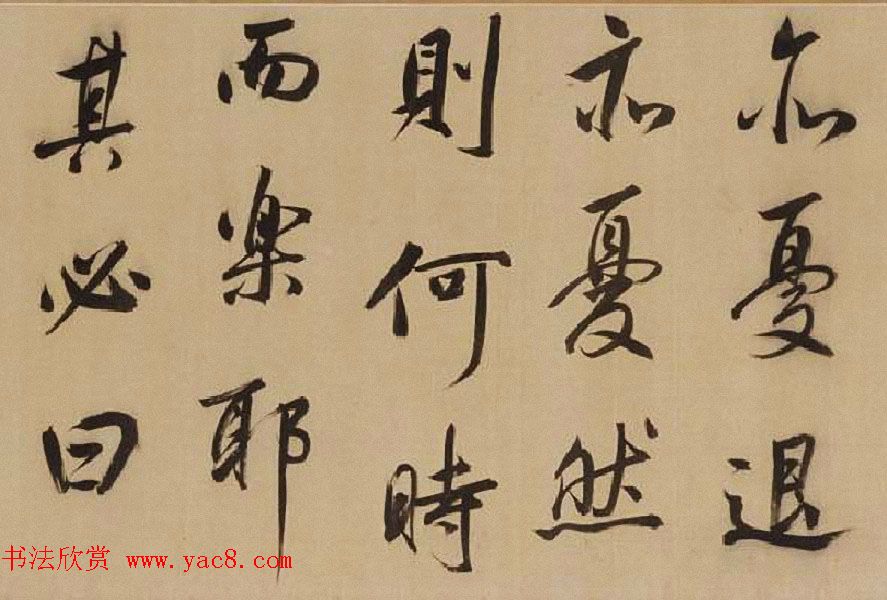 亦憂退
亦憂然
則何時
而楽耶
其必曰
书法欣赏 www.yac8.com